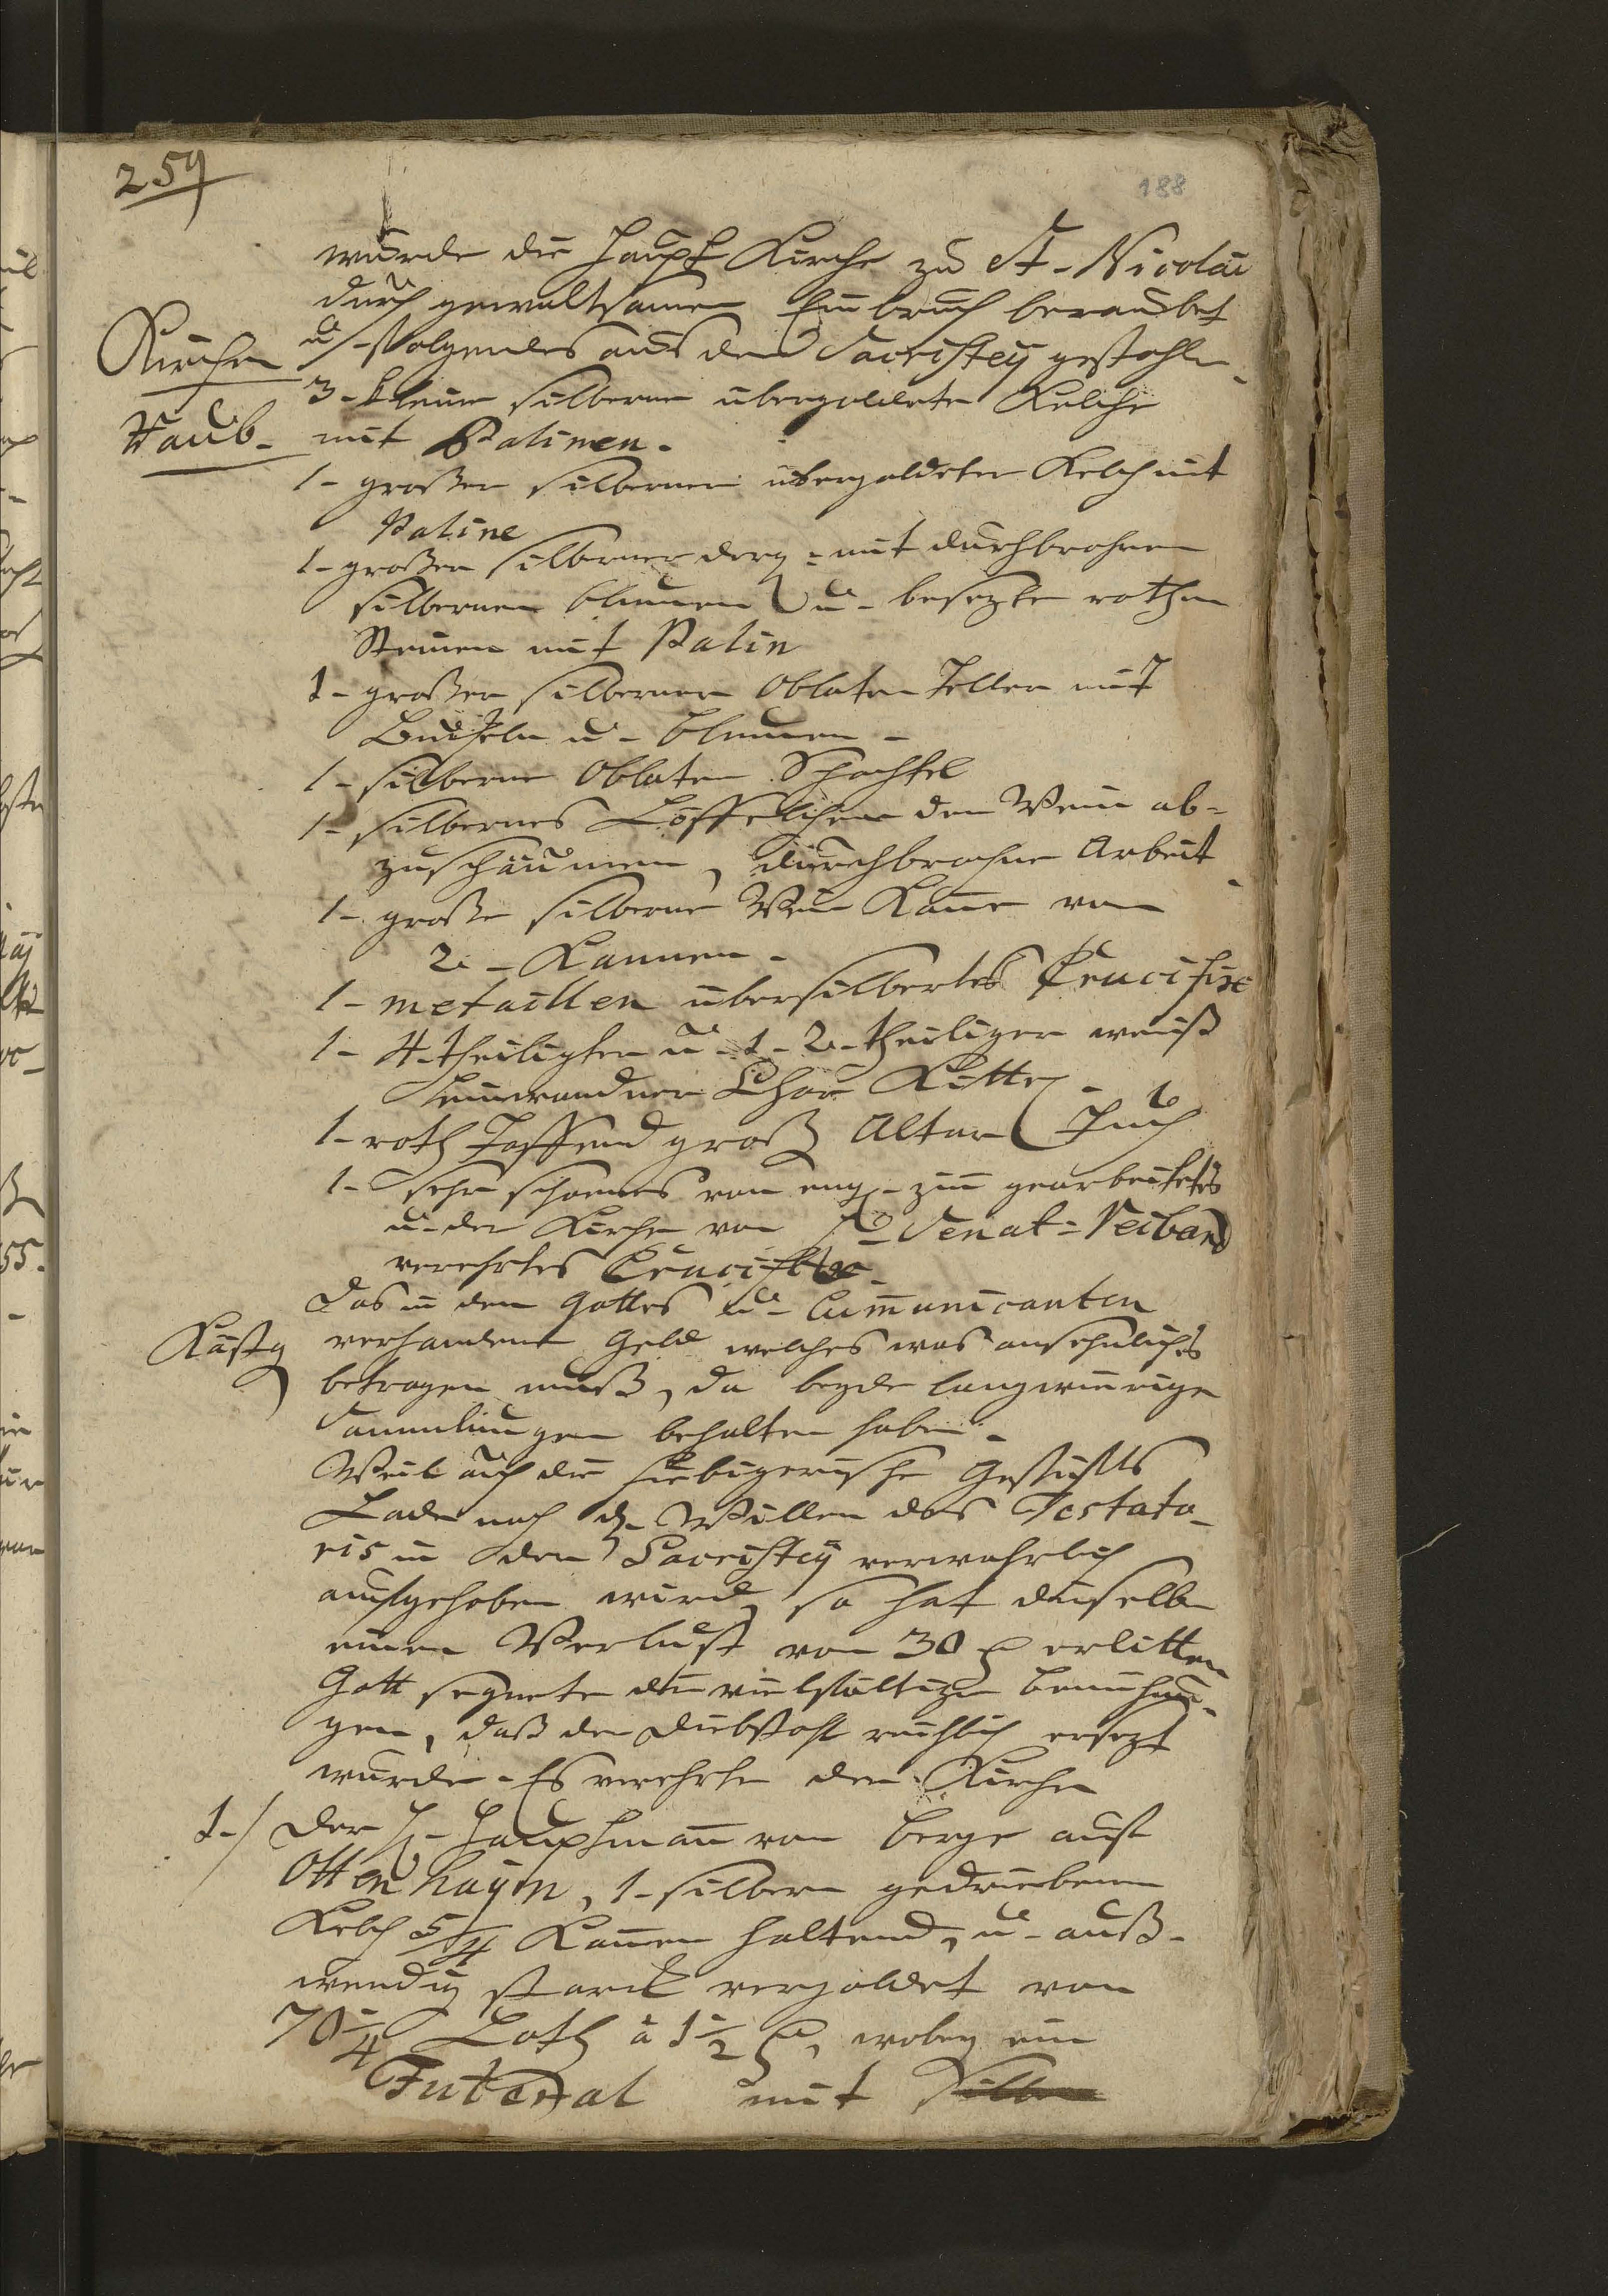 259
188
wurde die Haupt Kirche zu St. Nicolai
durch gewaltsamen Einbruch beraubet
Kirchen
u. folgendes aus der Sacristey gestohlen.
3 - kleine silberne übergoldete Kelche
Raub.
mit Patinen.
1 - großer silberner übergoldeter Kelch mit
Patine
1 - großer silberner derg: mit durchbrohnen
silbernen blumen u. besezten rothen
Steinen mit Patin
1 - großer silberner Oblaten Teller mit
Bucheln u. blumen.
1 - silberne Oblaten Schachtel
1 - silbernes Löffelchen den Wein ab-
zuschäumen, durchbrochne Arbeit.
1 - große silberne Wein Kanne von
2 - Kannen.
1 - metallen übersilbertes Crucifix
1 - 4-theiligter u. 1 - 2-theiliger weiß
leinwandner Chor Kittel.
1 - roth Taffend groß Altar Tuch
1 - sehr schoenes von eng. zin gearbeitetes
u. der Kirche von H. Senat: Neiband
verehrtes Crucifix.
Das in den Gottes u. Cummunicanten
Kästg
verhandene Geld welches was ansehnliches
betragen muß, da beyde langwierige
Sammlungen behalten haben.
Weil auch die hiebigerische Gestiffts
Lade nach d. Willen des Testato-
ris in der Sacristey verwahrlich
aufgehoben wird, so hat dieselbe
einen Verlust von 30 rl erlitten
Gott segnete die vielfältige bemühun-
gen, daß der Diebstahl reichlich ersezt
wurde. Es verehrte der Kirche
1./ Der H. Hauptmann von Berge auf
Ottenhayn, 1 - silbern gedriebenen
Kelch 5/4 Kannen haltend, u. auß-
wendig starck vergoldet von
70 1/4 Loth à 1 1/2 rl, wobey ein
Futeral mit Silber